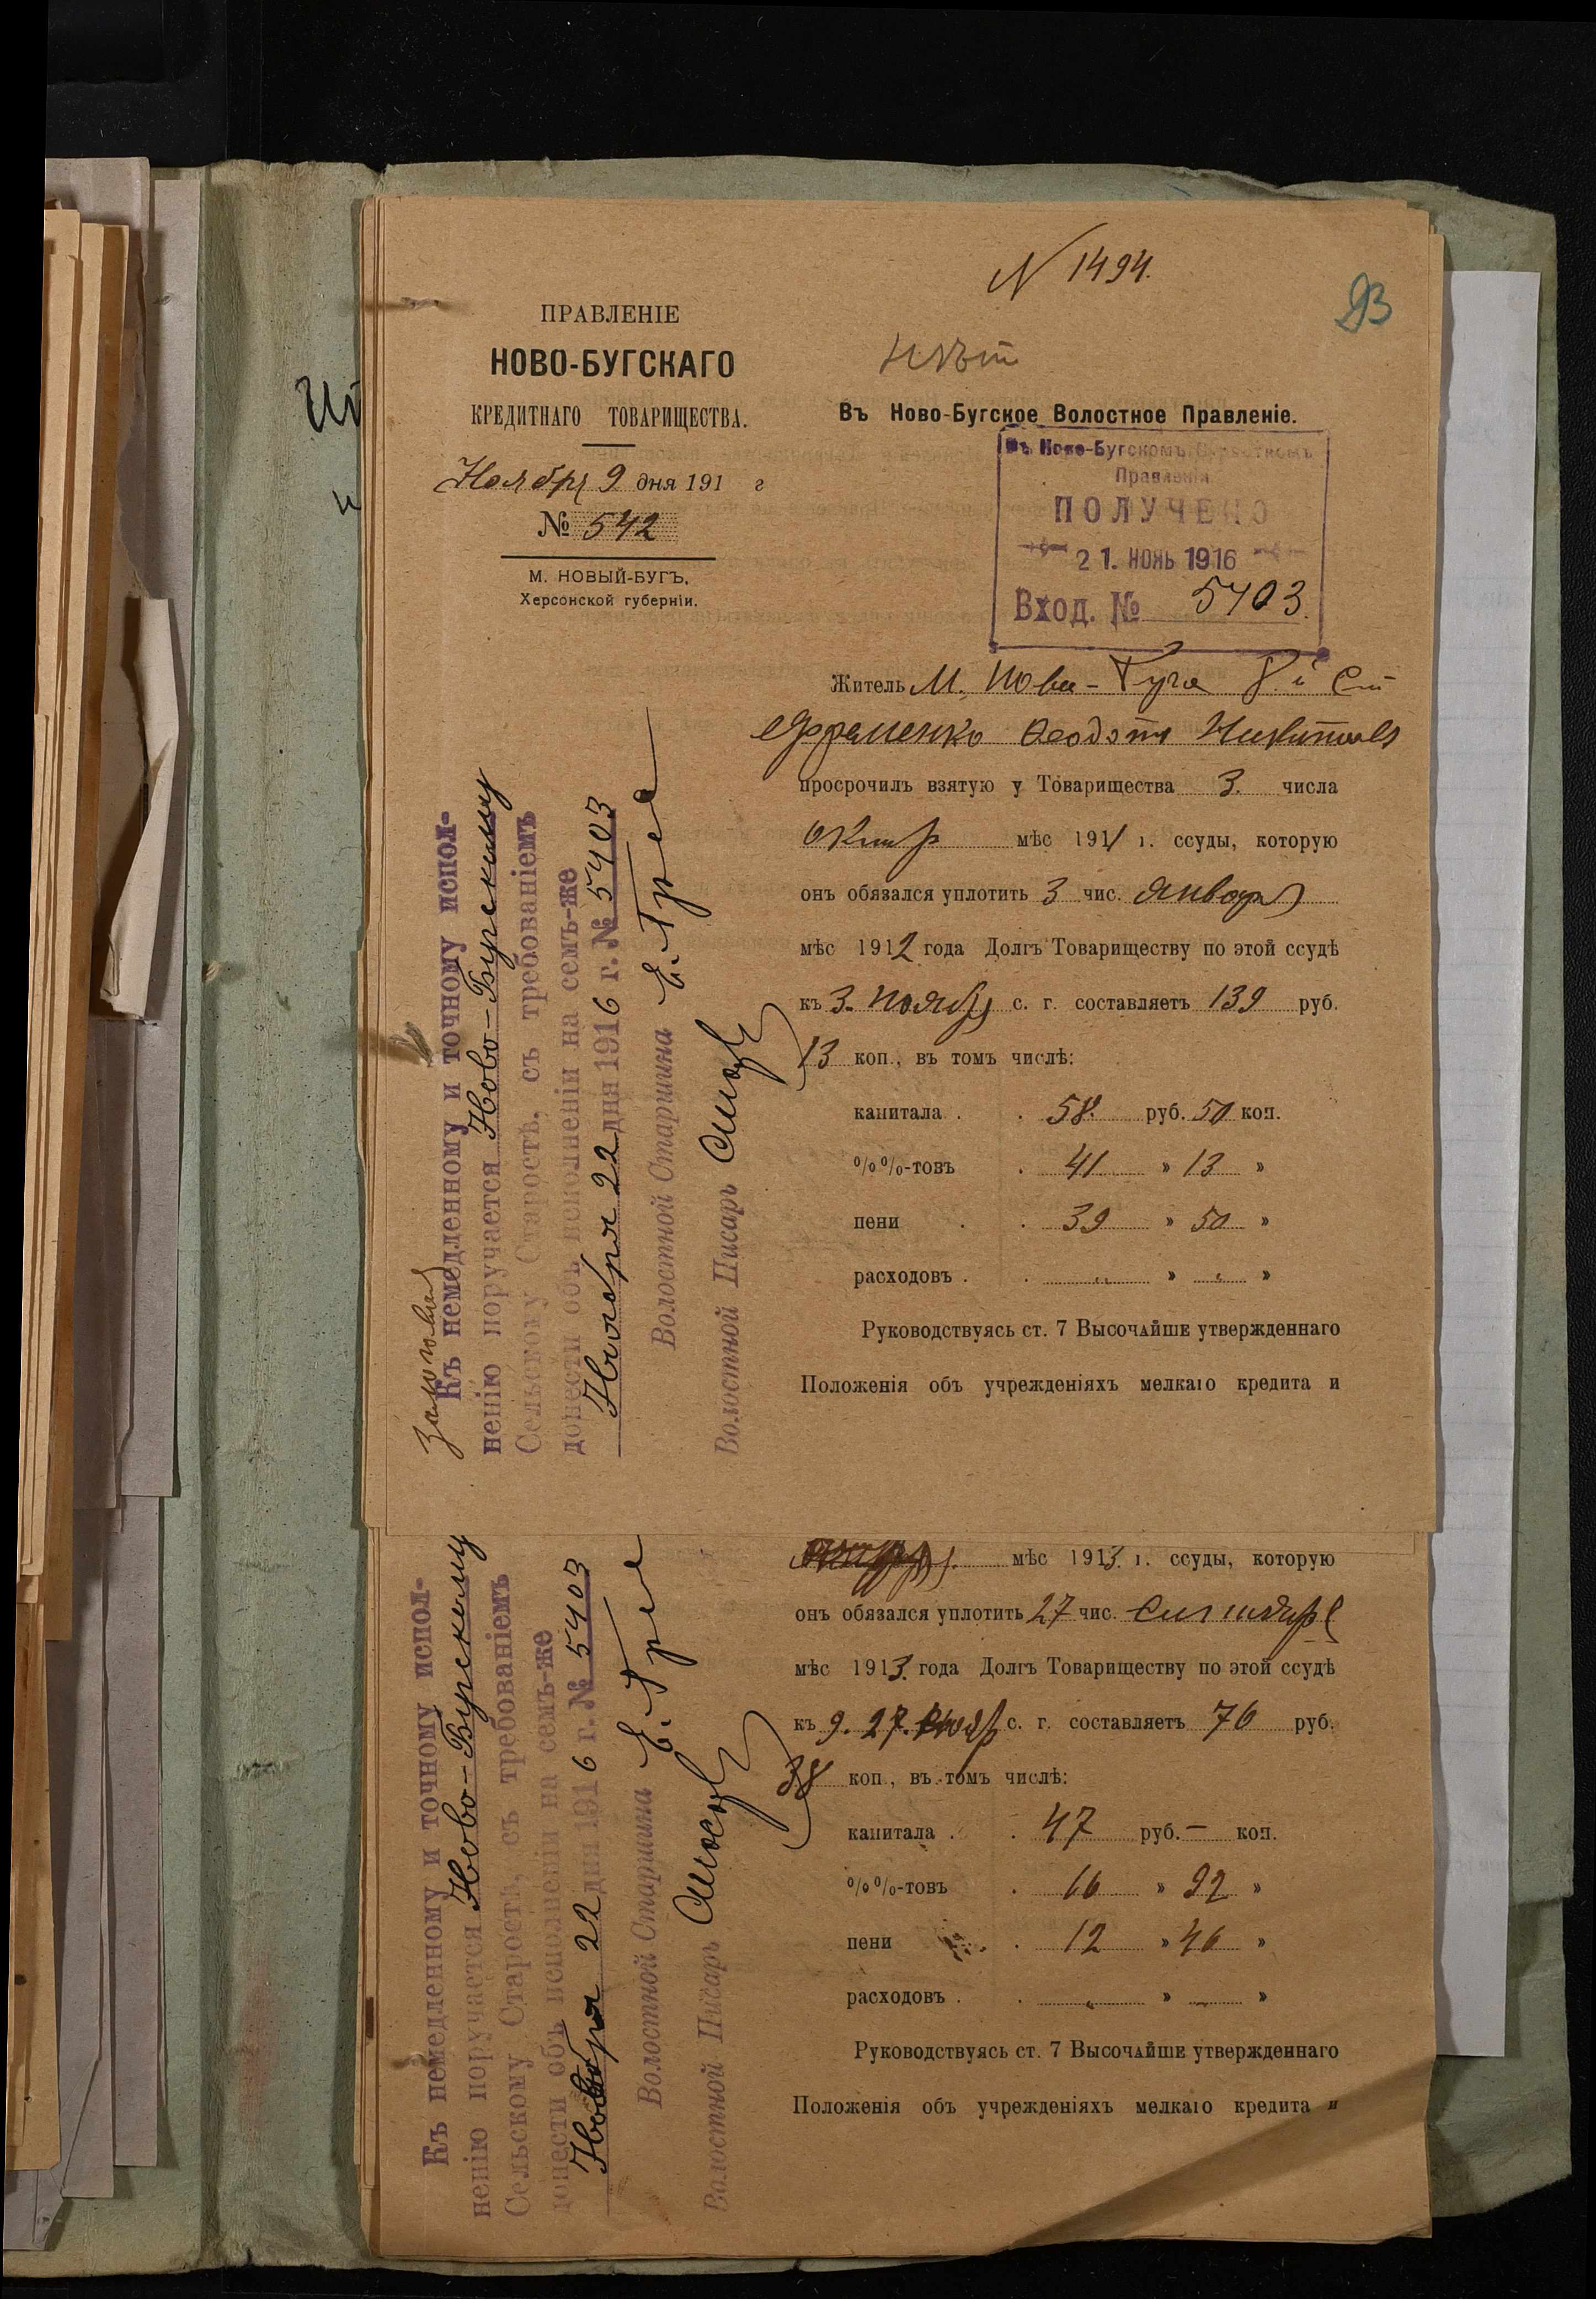 N 1494.
93
нѣт
ПРАВЛЕНІЕ
НОВО-БУГСКАГО
КРЕДИТНАГО ТОВАРИЩЕСТВА.
Ноября 9 дня 191 г
№ 542
М. НОВЫЙ-БУГЪ,
Херсонской губерніи.
Въ Ново-Бугское Волостное Правленіе.
Въ Ново-Бугскомъ Волостномъ
Правленіи
ПОЛУЧЕНО
21. НОЯБ 1916
Вход. № 5403.
Житель М. Нова-Буга
Ефременко Феодотъ Никитовъ
просрочилъ взятую у Товарищества 3. числа
октяр мѣс 1911 г. ссуды, которую
онъ обязался уплотить 3 чис. январ
мѣс 1912 года Долгъ Товариществу по этой ссудѣ
къ 3. Ноябр с. г. составляетъ 139 руб.
13 коп., въ томъ числѣ:
капитала . . 58. руб. 50 коп.
%%-товъ . 41 » 13 »
пени . . 39 » 50 »
расходовъ . . „ » „ »
Руководствуясь ст. 7 Высочайше утвержденнаго
Положенія объ учрежденіяхъ мелкаго кредита и
Къ немедленному и точному испол-
ненію поручается Ново-Бугскому
Сельскому Старостѣ, съ требованіемъ
донести объ исполненіи на семъ-же
Ноября 22 дня 1916 г. № 5403
Волостной Старшина
Волостной Писарь
мѣс 1913. г. ссуды, которую
онъ обязался уплотить 27 чис.
мѣс 1913. года Долгъ Товариществу по этой ссудѣ
къ 9. с. г. составляетъ 76 руб.
38 коп., въ томъ числѣ:
капитала . . 47 руб. — коп.
%%-товъ . 16 » 92 »
пени . 12 » 46 »
расходовъ . . „ » »
Руководствуясь ст. 7 Высочайше утвержденнаго
Положенія объ учрежденіяхъ мелкаго кредита и
Къ немедленному и точному испол-
ненію поручается Ново-Бугскому
Сельскому Старостѣ, съ требованіемъ
донести объ исполненіи на семъ-же
Ноября 22 дня 1916 г. № 5403
Волостной Старшина
Волостной Писарь